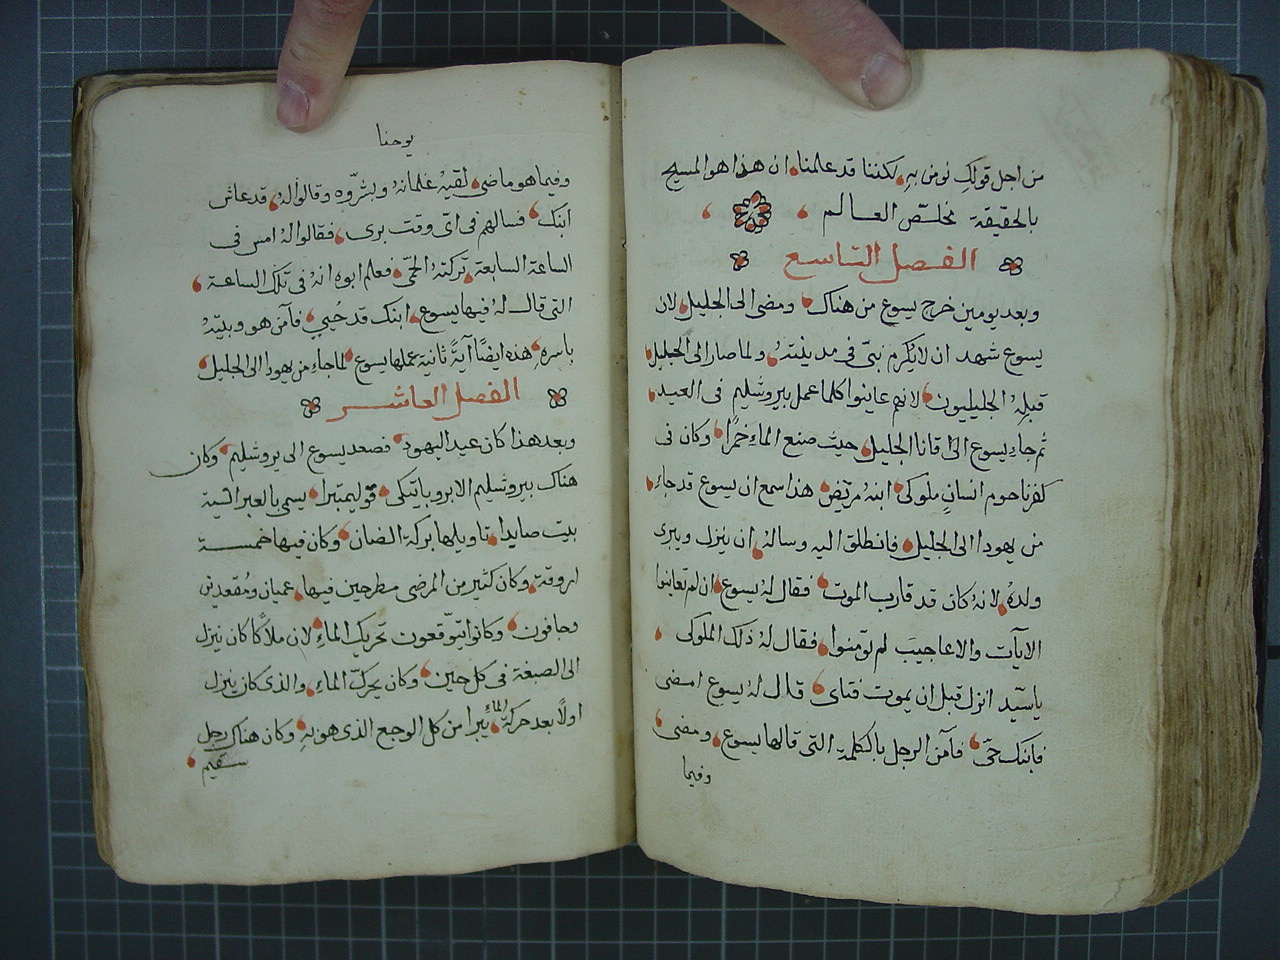 من اجل قولكِ نومن بهِ لكننا قد علمنا ان هذا هو المسيح
بالحقيقة مخلّص العالم
الفصل التاسع
وبعد يومين خرج يسوع من هناك ومضى الى الجليل لان
يسوع شهد ان لا يُكرم نبىّ فى مدينتهِ ولما صار الى الجليل
قبلهُ الجليليون لانهم عاينوا كلما عمل بيروشليم فى العيد
ثم جاء يسوع الى قانا الجليل حيث صنع الماء خمرًا وكان فى
كفرناحوم انسان ملوكى ابنهُ مريض هذا سمع ان يسوع قد جاء
من يهودا الى الجليل فانطلق اليه وسالهُ ان ينزل ويبرى
ولدهُ لانهُ كان قد قارب الموت فقال لهُ يسوع ان لم تعاينوا
الايآت والاعاجيب لم تومنوا فقال لهُ ذلك الملوكى
ياسيّد انزل قبل ان يموت فتاى قال لهُ يسوع امضى
فابنك حىّ فآمن الرجل بالكلمة التى قالها يسوع ومضى
وفيما
يوحنا
وفيما هو ماضى لقيهُ غلمانهُ وبشّروهِ وقالوا لهُ قد عاش
ابنك فسالهم فى اىّ وقت برى فقالوا لهُ امس فى
الساعة السابعة تركتهُ الحمّى فعلم ابوه انهُ فى تلك الساعة
التى قال لهُ فيها يسوع ابنك قد حيى فآمن هو وبيتهُ
باسرهِ هذه ايضًا آيةً ثانية عملها يسوع لما جاء من يهودا الى الجليل
الفصل العاشر
وبعد هذا كان عيد اليهود فصعد يسوع الى يروشليم وكان
هناك بيروشليم الابروباتيكى قوليمتبرا يسمى بالعبرانية
بيت صايدا تاويلها بركة الضان وكان فيها خمسة
اروقة وكان كثير من المرضى مطرحين فيها عميان ومُقعدين
وجافون وكانوا يتوّقعون تحريك الماء لان ملاكًا كان ينزل
الى الصبغة فى كل حين وكان يحركّ الماء والذى كان ينزل
اولًا بعد حركة الماء يبرا من كل الوجع الذى هو بهِ وكان هناك رجل
سقيم